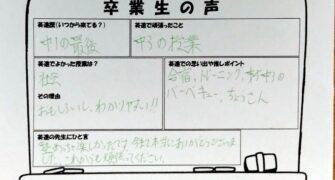 卒業生の声
英進歴(いつから来てる?)
中1の最後
英進で頑張ったこと
中3の授業
英進でよかった授業は?
社会
その理由
おもしろいし、わかりやすい!!
英進での思い出や推しポイント
合宿、トレーニング、中3の
バーベキュー、ちょこん
英進の先生にひと言
塾めっちゃ楽しかったです。今まで本当にありがとうございま
した。これからも頑張ってください。